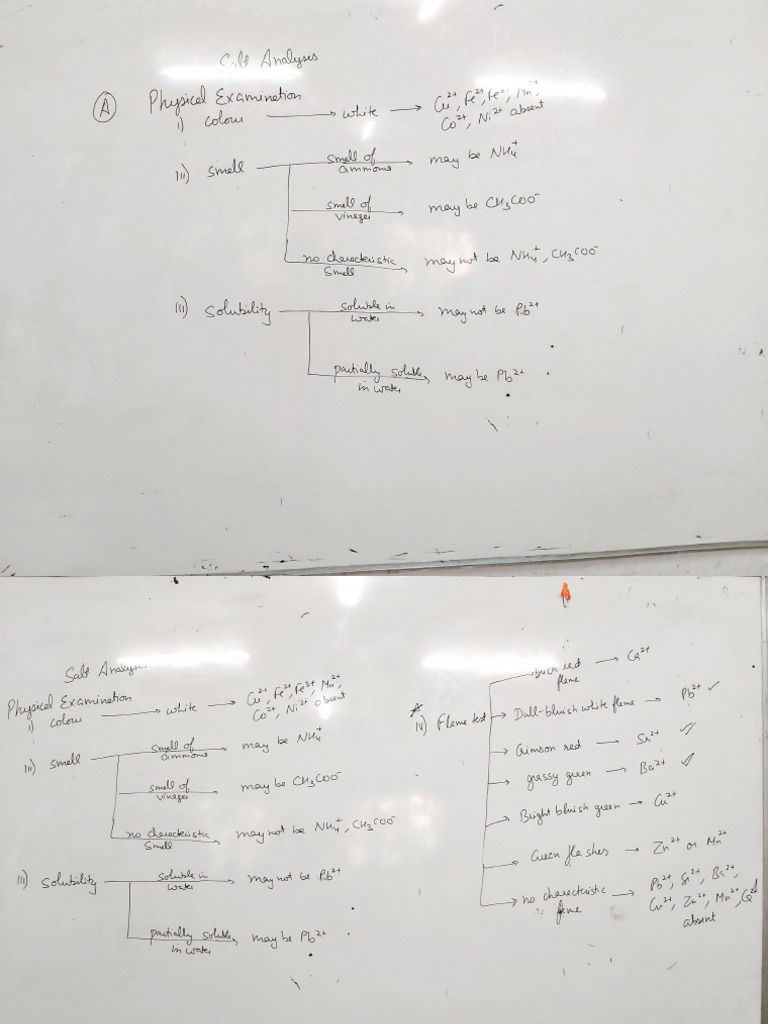 Salt Analysis
A Physical Examination
i) colour → white → Cu²⁺, Fe²⁺, Fe³⁺, Mn²⁺,
Co²⁺, Ni²⁺ absent
ii) smell smell of ammonia → may be NH₄⁺
smell of vinegar → may be CH₃COO⁻
no characteristic smell → may not be NH₄⁺, CH₃COO⁻
iii) Solubility soluble in water → may not be Pb²⁺
partially soluble in water → may be Pb²⁺
Salt Analysis
Physical Examination
i) colour → white → Cu²⁺, Fe²⁺, Fe³⁺, Mn²⁺,
Co²⁺, Ni²⁺ absent
ii) smell smell of ammonia → may be NH₄⁺
smell of vinegar → may be CH₃COO⁻
no characteristic smell → may not be NH₄⁺, CH₃COO⁻
iii) Solubility soluble in water → may not be Pb²⁺
partially soluble in water → may be Pb²⁺
iv) Flame test → brick red flame → Ca²⁺
→ Dull-bluish white flame → Pb²⁺ ✓
→ Crimson red → Sr²⁺ ✓
→ grassy green → Ba²⁺ ✓
→ Bright bluish green → Cu²⁺
→ Green flashes → Zn²⁺ or Mn²⁺
→ no characteristic flame → Pb²⁺, Sr²⁺, Ba²⁺,
Cu²⁺, Zn²⁺, Mn²⁺, Ca²⁺
absent